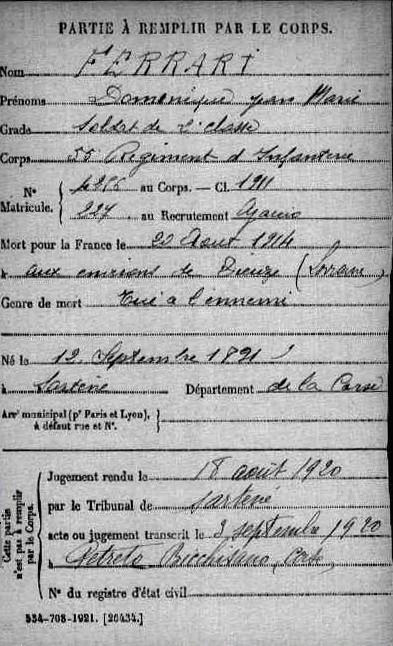 PARTIE À REMPLIR PAR LE CORPS.
Nom FERRARI
Prénoms Domenique jean Marie
Grade Soldat de 2e classe
Corps 55 Regiment d Infanterie
N° Matricule. { 4266 au Corps. — Cl. 1911
227 au Recrutement Ajaccio
Mort pour la France le 20 Aout 1914
à aux environs de Dieuze (Lorraine)
Genre de mort Tué à l'ennemi
Né le 12 Septembre 1891
à Sartene Département de la Corse
Arrt municipal (pr Paris et Lyon), à défaut rue et N°. }
Cette partie n'est pas à remplir par le Corps. {
Jugement rendu le 18 août 1920
par le Tribunal de Sartene
acte ou jugement transcrit le 3 septembre 1920
à Petreto Bicchisano, Corse
N° du registre d'état civil
534-708-1921. [26434.]